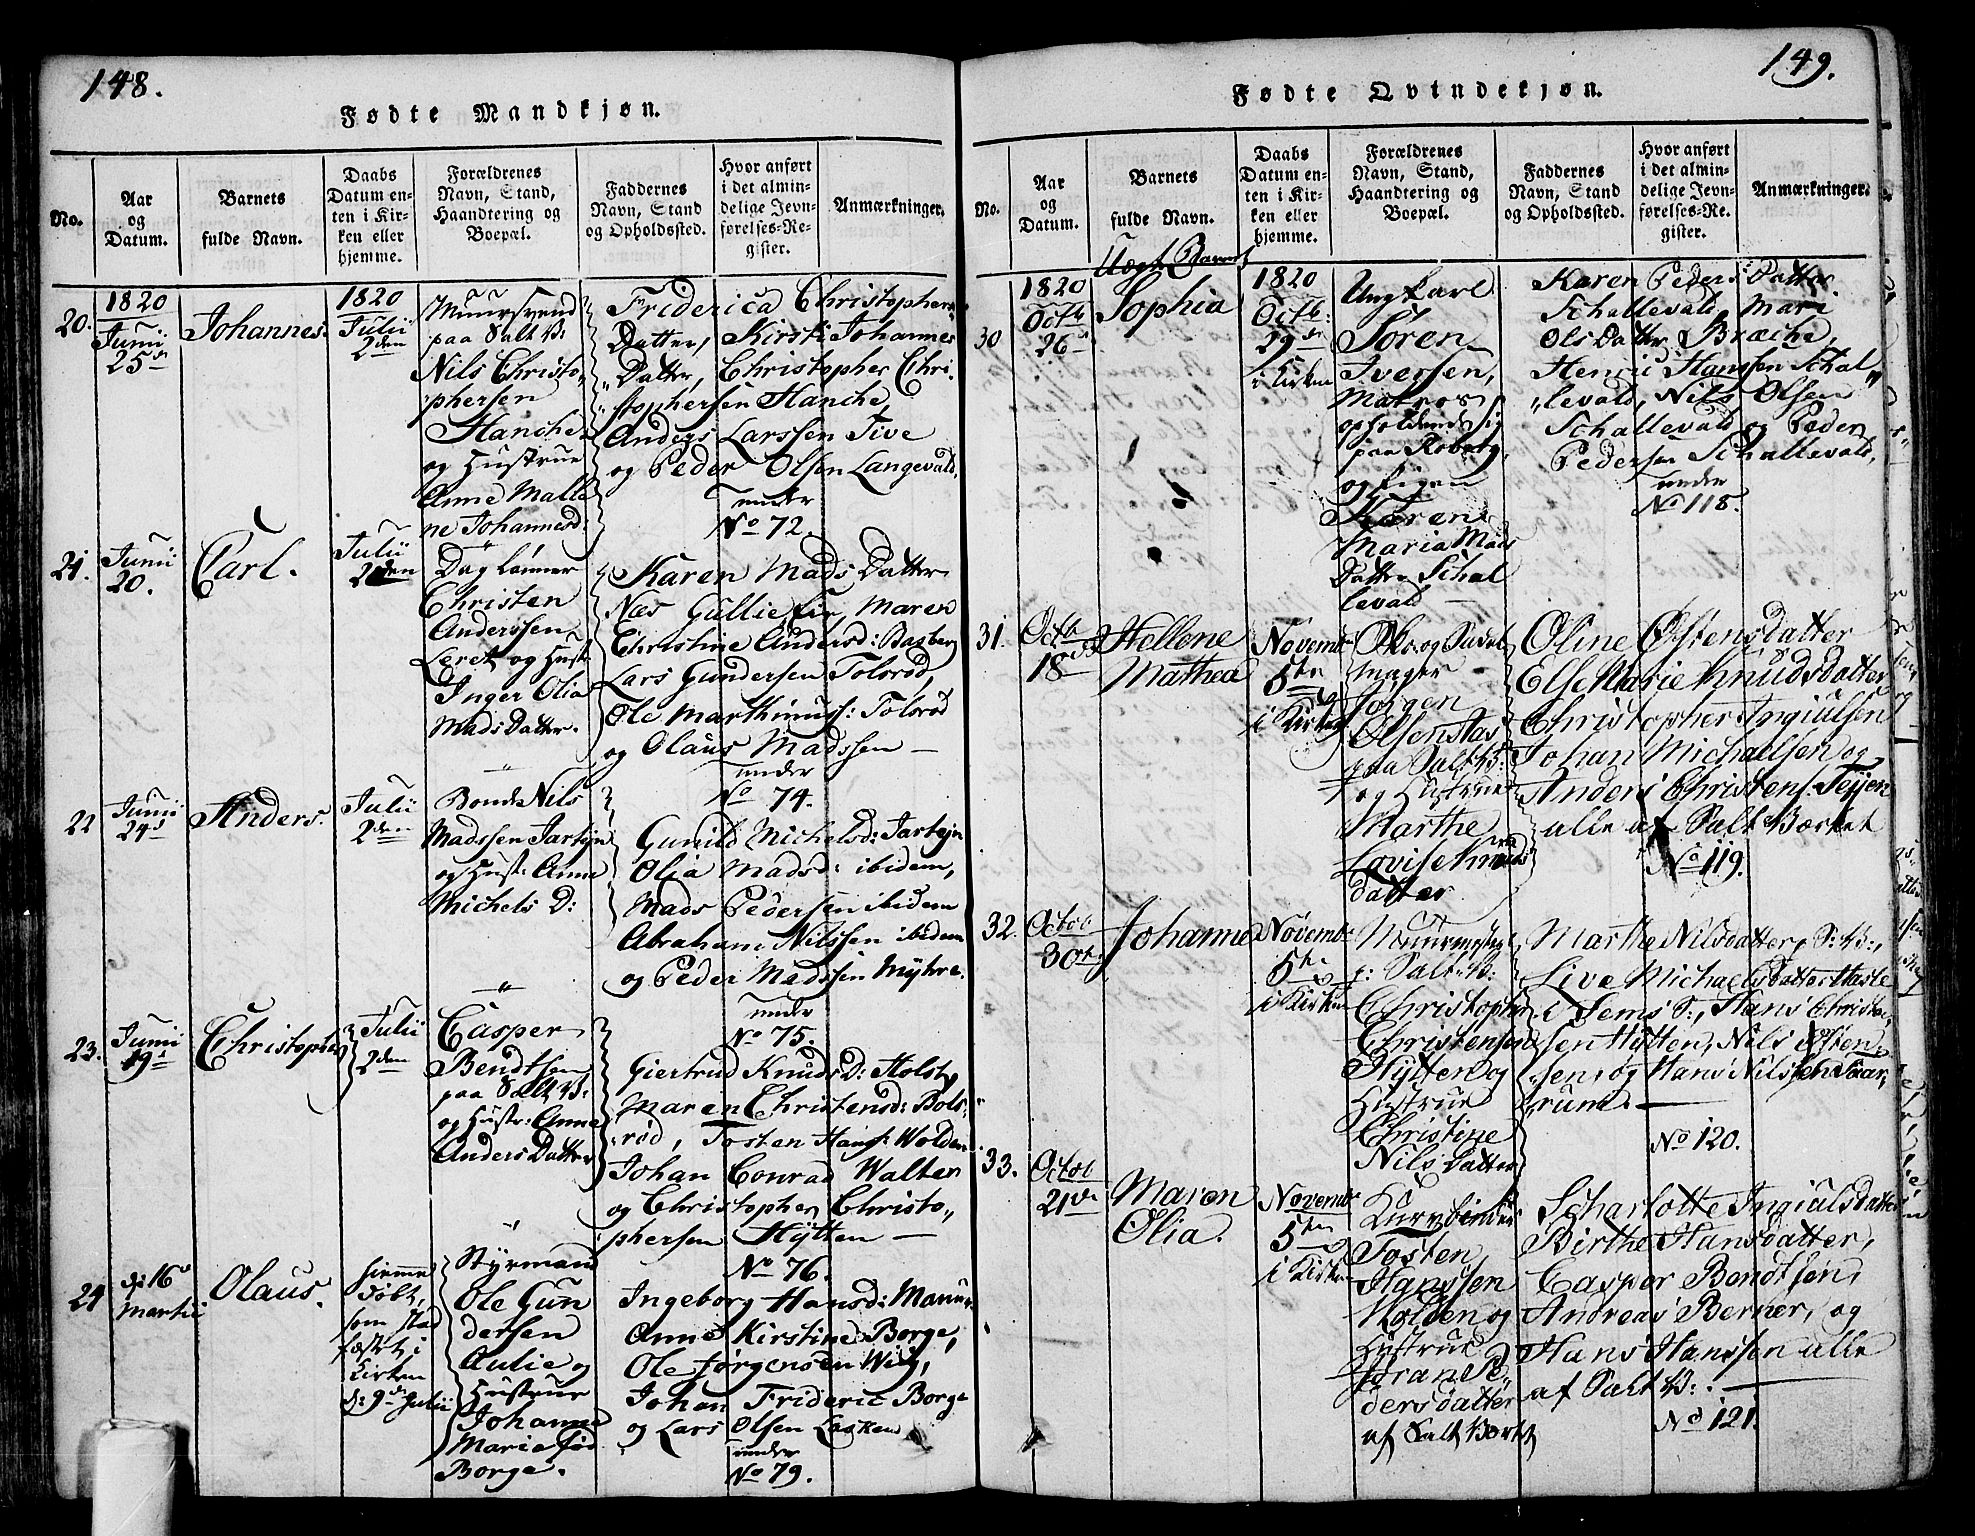 148.
Fødte Mandkjøn.
No.
Aar
og
Datum.
Barnets
fulde Navn.
Daabs
Datum en-
ten i Kir-
ken eller
hjemme.
Forældrenes
Navn, Stand,
Haandtering og
Boepæl.
Faddernes
Navn, Stand
og Opholdssted.
Hvor anført
i det almin-
delige Jevn-
førelses-Re-
gister.
Anmærkninger.
20.
1820
Junii
25de
Johannes.
1820
Julii
2den
Muursvend
paa Salt V:
Nils Christo,,
phersen
Hanche
og Hustrue
Anne Malle
ne Johannesd:
Friderica Christophers
Datter, Kirsti Johannes
Datter, Christopher Chri,
stophersen Hanche
Anders Larssen Tive
og Peder Olsen Langevald,
under
No 72.
21.
Junii
20.
Carl.
Julii
2den
Dag Lønner
Christen
Anderssen
Leret og Hust
Inger Olia
Mads Datter.
Karen Mads Datter
Næs Gullie, Maren
Christine Andersd: Bagberg
Lars Gundersen Tolsrød,
Ole Marthinuss: Tolsrød
og Olaus Madssen —
under
No 74.
22
Junii
24de
Anders.
Julii
2den
Bonde Nils
Madssen Jarteyn
og Hust: Anne
Michels D:
Gunild Michelsd: Jarteyn
Olia Madsd: ibidem,
Mads Pedersen ibidem
Abraham Nilssen ibidem
og Peder Madssen Myhre.
under
No 75.
23.
Junii
19de
Christopher
Julii
2den
Casper
Bendtsen
paa Salt V:
og Hustr: Anne
Anders Datter
Giertrud Knuds D: Holst,
Maren Christensd: Bols,
rød, Tosten Hanss: Wolden
Johan Conrad Walter
og Christopher Christo,,
phersen Hytten —
No 76.
24
d: 16
Martii
Olaus.
hiemme
døbt,
som stad
fæstet i
Kirken
d: 9de Julii
Styrmand
Ole Gun
dersen
Aulie og
Hustrue
Johanne
Maria
Borge.
Ingeborg Hansd: Manur
Anne Kirstine Borge,
Ole Jørgensen Wiig,
Johan Frideric Borge
og Lars Olsen Lasken
under
No 79.
149.
Fødte Qvindekjøn.
No.
Aar
og
Datum.
Barnets
fulde Navn.
Daabs
Datum en-
ten i Kir-
ken eller
hjemme.
Forældrenes
Navn, Stand,
Haandtering og
Boepæl.
Faddernes
Navn, Stand
og Opholdssted.
Hvor anført
i det almin-
delige Jevn-
førelses-Re-
gister.
Anmærkninger.
30
1820
Octb
26de
Uægte Barnet
Sophia
1820
Octb:
29de
i Kirken
Ungkarl
Søren
Iversen,
Matros
opholdende sig
paa Roberg,
og Pigen
Karen
Maria Mads
Datter Schal
levald —
Karen Peders Datter
Schallevald, Mari
Ols Datter Bræche,
Henric Hanssen Schal
,,levald, Nils Olsen
Schallevald og Peder
Pedersen Schallevald,
under
No 118.
31.
Octb
18de
Hellene
Mathea
Novemb
5te
i Kirken
mager
Jörgen
Olsen
paa Salt V:
og Hustrue
Marthe
Lovise Knuds
datter
Oline Østensdatter
Else Marie Knudsdatter
Christopher Ingiulsen
Johan Michaelsen og
Anders Christens. Teijen
alle af Salt Værket
No 119.
32.
Octob
30te
Johanne
Novemb
5te
i Kirken
Muurmester
p: Salt V:
Christopher
Christensen
Hytten og
Hustrue
Christine
Nils datter
Marthe Nilsdatter, S: V:,
Live Michaelsdatter Hasle
i Sems S:, Hans Christen,
sen Hytten, Nils Østen,,
sen, og Hans Nilssen Taar,
rum. —
No 120.
33.
Octob
21de
Maren
Olia.
Novemb
5te
i Kirken
Kurvbinder
Tosten
Hanssen
Wolden og
Hustrue
Joran Pe
dersdatter
af Salt Værket
Scharlotte Ingiulsdatter
Birthe Hansdatter,
Casper Bendtsen,
Andreas Berner, og
Hans Hanssen alle
af Salt V: . —
No 121.